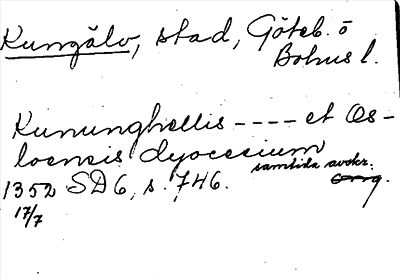 Kungälv, stad, Göteb. o
Bohus l.
Kununghellis ---- et Os-
loensis dyocesium
1352 SD 6, s. 746. samtida avskr.
17/7 orig.